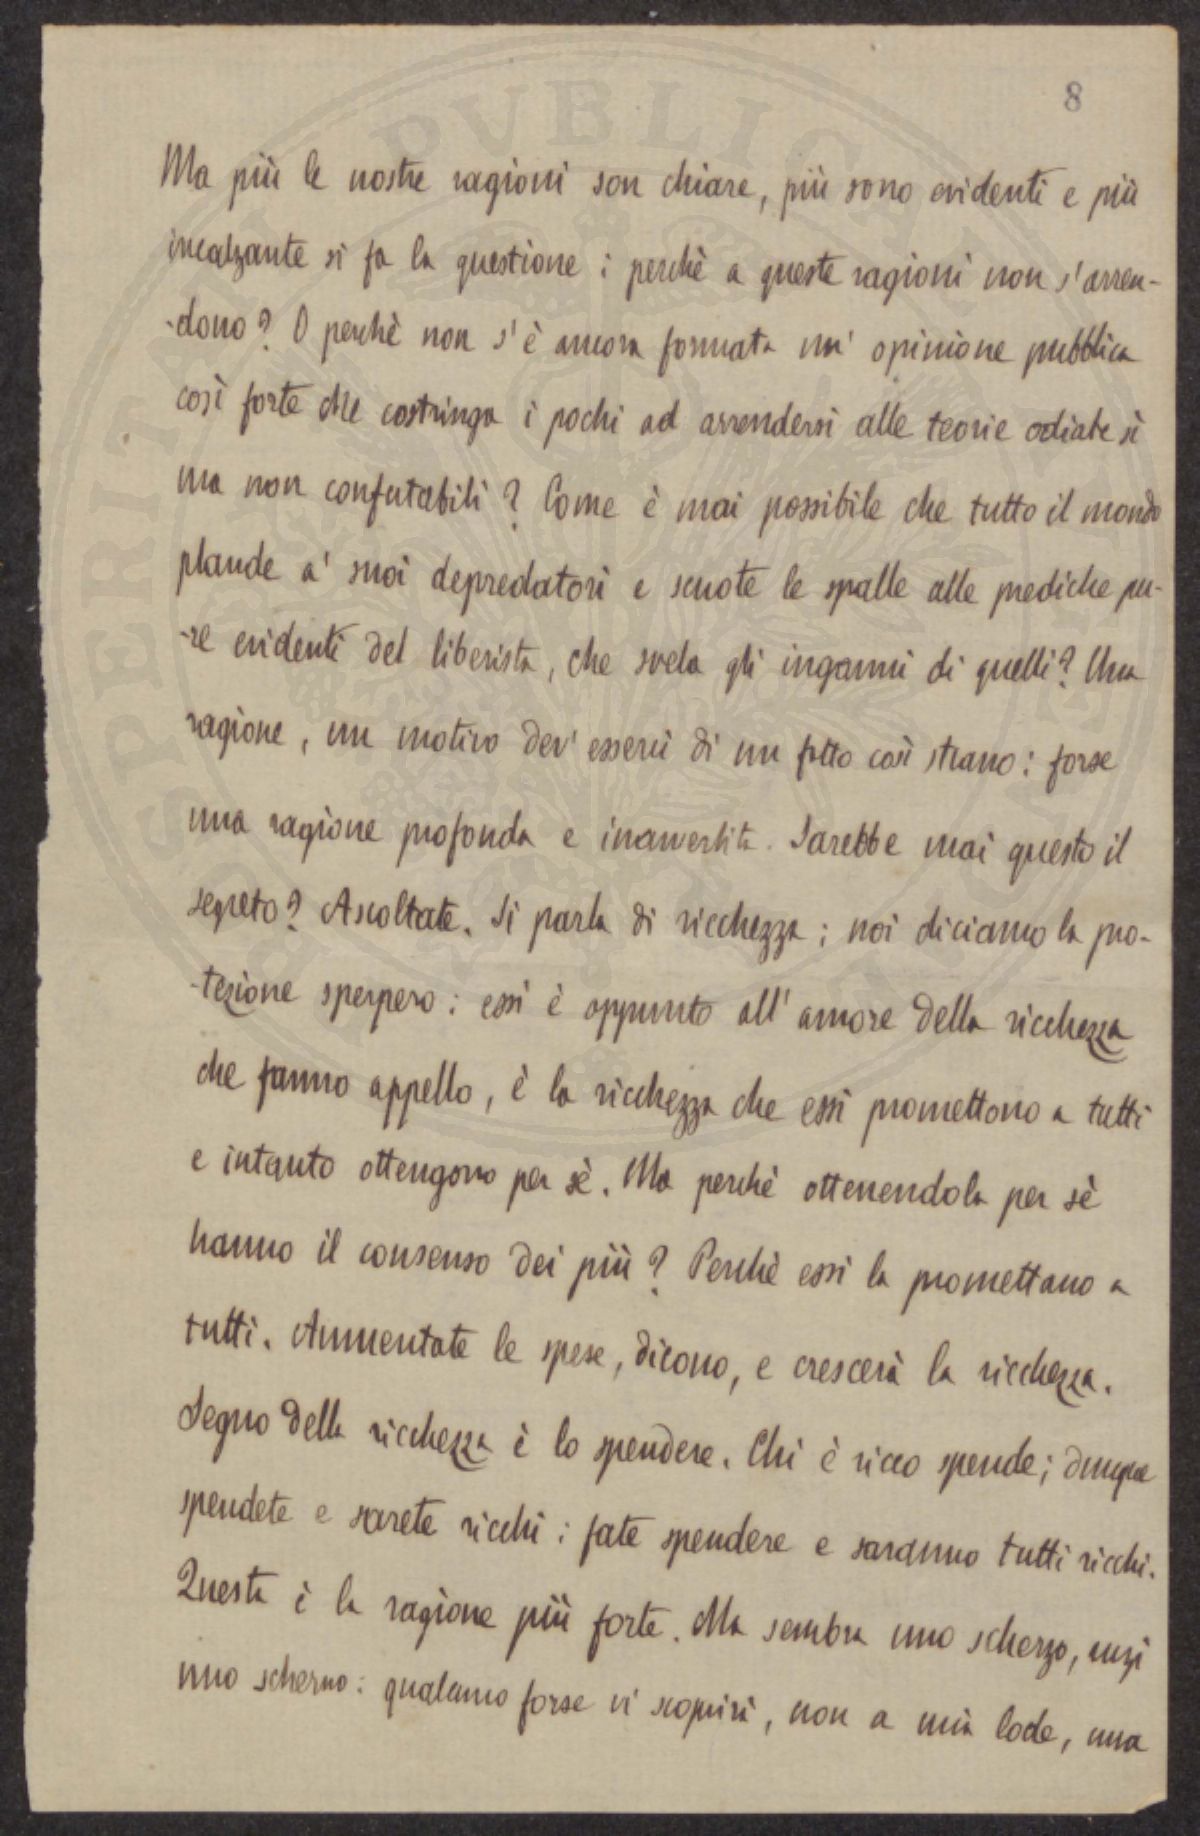 8
Ma più le nostre ragioni son chiare, più sono evidenti e più
incalzante si fa la questione: perchè a queste ragioni non s'arren-
-dono? O perchè non s'è ancora formata un' opinione pubblica
così forte che costringa i pochi ad arrendersi alle teorie odiate sì
ma non confutabili? Come è mai possibile che tutto il mondo
plaude a' suoi depredatori e scuote le spalle alle prediche pu-
-re evidenti del liberista, che svela gli inganni di quelli? Una
ragione, un motivo dev' esserci di un fatto così strano: forse
una ragione profonda e inavvertita. Sarebbe mai questo il
segreto? Ascoltate. Si parla di ricchezza; noi diciamo la pro-
-tezione sperpero: essi è appunto all' amore della ricchezza
che fanno appello, è la ricchezza che essi promettono a tutti
e intanto ottengono per sè. Ma perchè ottenendola per sè
hanno il consenso dei più? Perchè essi la promettano a
tutti. Aumentate le spese, dicono, e crescerà la ricchezza.
Segno della ricchezza è lo spendere. Chi è ricco spende; dunque
spendete e sarete ricchi: fate spendere e saranno tutti ricchi.
Questa è la ragione più forte. Ma sembra uno scherzo, anzi
uno scherno: qualcuno forse vi scoprirà, non a mia lode, una
PUBLICA